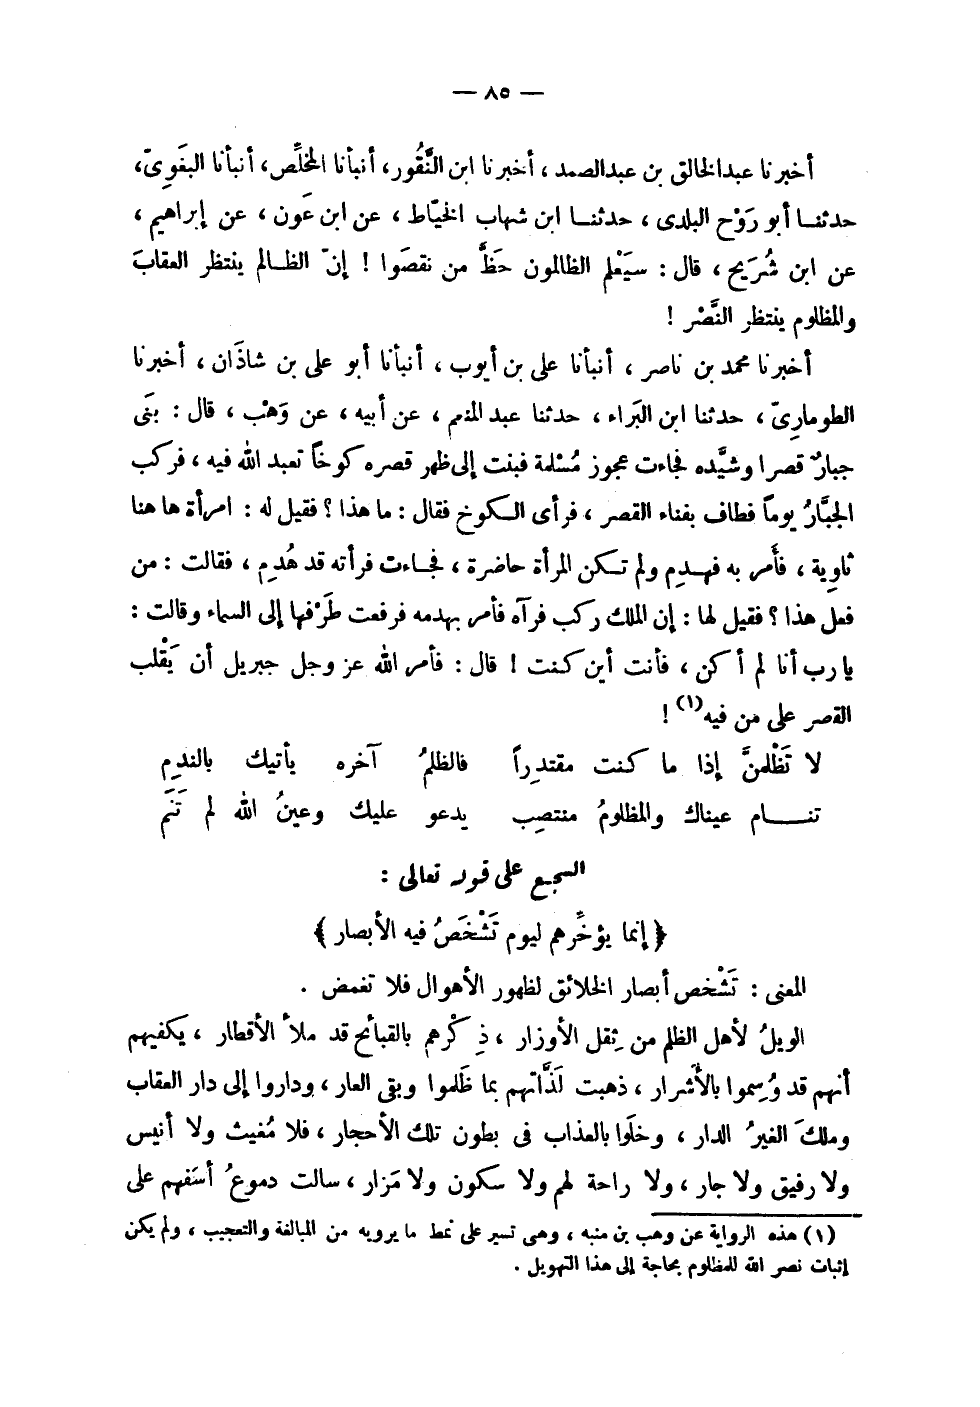 — ٨٥ —
أخبرنا عبدالخالق بن عبدالصمد ، أخبرنا ابن النَّقُور، أنبأنا المخلِّص، أنبأنا البغَوِىّ،
حدثنـا أبو رَوْح البلدى ، حدثنـا ابن شهاب الخيّاط ، عن ابن عَون ، عن إبراهيم ،
عن ابن شُرَيح ، قال : سيَعْلم الظالمون حَظَّ من نقصَوا ! إنّ الظـالم ينتظر العقابَ
والمظلوم ينتظر النَّصْر !
أخبرنا محمد بن ناصر ، أنبأنا على بن أيوب ، أنبأنا أبو على بن شاذَان ، أخبرنا
الطومارِىّ ، حدثنا ابن البَراء ، حدثنا عبد المنعم ، عن أبيه ، عن وَهْب ، قال : بنَى
جبارٌ قصرا وشيَّده فجاءت عجوز مُسْلمة فبنت إلى ظهر قصره كوخاً تعبد الله فيه ، فركب
الجبَّارُ يوماً فطاف بفناء القصر ، فرأى الـكوخ فقال : ما هذا ؟ فقيل له : امرأة ها هنا
ثاوِية ، فأَمر به فهـدِم ولم تـكن المرأة حاضرة ، فجـاءت فرأته قد هُدِم ، فقالت : من
فعل هذا ؟ فقيل لها : إن الملك ركب فرآه فأمر بهدمه فرفعت طَرْفها إلى السماء وقالت :
يا رب أنا لم أكن ، فأنت أين كنت ! قال : فأمر الله عز وجل جبريل أن يَقْلب
القصر على من فيه(١) !
لا تَظْلمنَّ إذا ما كنت مقتدِراً فالظلمُ آخره يأتيك بالندِم
تنـــام عيناك والمظلومُ منتصِب يدعو عليك وعينُ الله لم تَنَم
السجع على قوله تعالى :
﴿ إنما يؤخِّرهم ليوم تَشْخَصُ فيه الأبصار ﴾
المعنى : تَشْخص أبصار الخلائق لظهور الأهوال فلا تغمض .
الويلُ لأهل الظلم من ثِقل الأوزار ، ذِكْرهم بالقبائح قد ملأ الأقطار ، يكفيهم
أنهم قد وُسِموا بالأشرار ، ذهبت لَذَّاتهم بما ظَلموا وبقى العار ، وداروا إلى دار العقاب
وملكَ الغيرُ الدار ، وخلَوا بالعذاب فى بطون تلك الأحجار ، فلا مُغيث ولا أنيس
ولا رفيق ولا جار ، ولا راحة لهم ولا سكون ولا مَزار ، سالت دموعُ أسَفهم على
(١) هذه الرواية عن وهب بن منبه ، وهى تسير على نمط ما يرويه من المبالغة والتعجيب ، ولم يكن
إثبات نصر الله للمظلوم بحاجة إلى هذا التهويل .